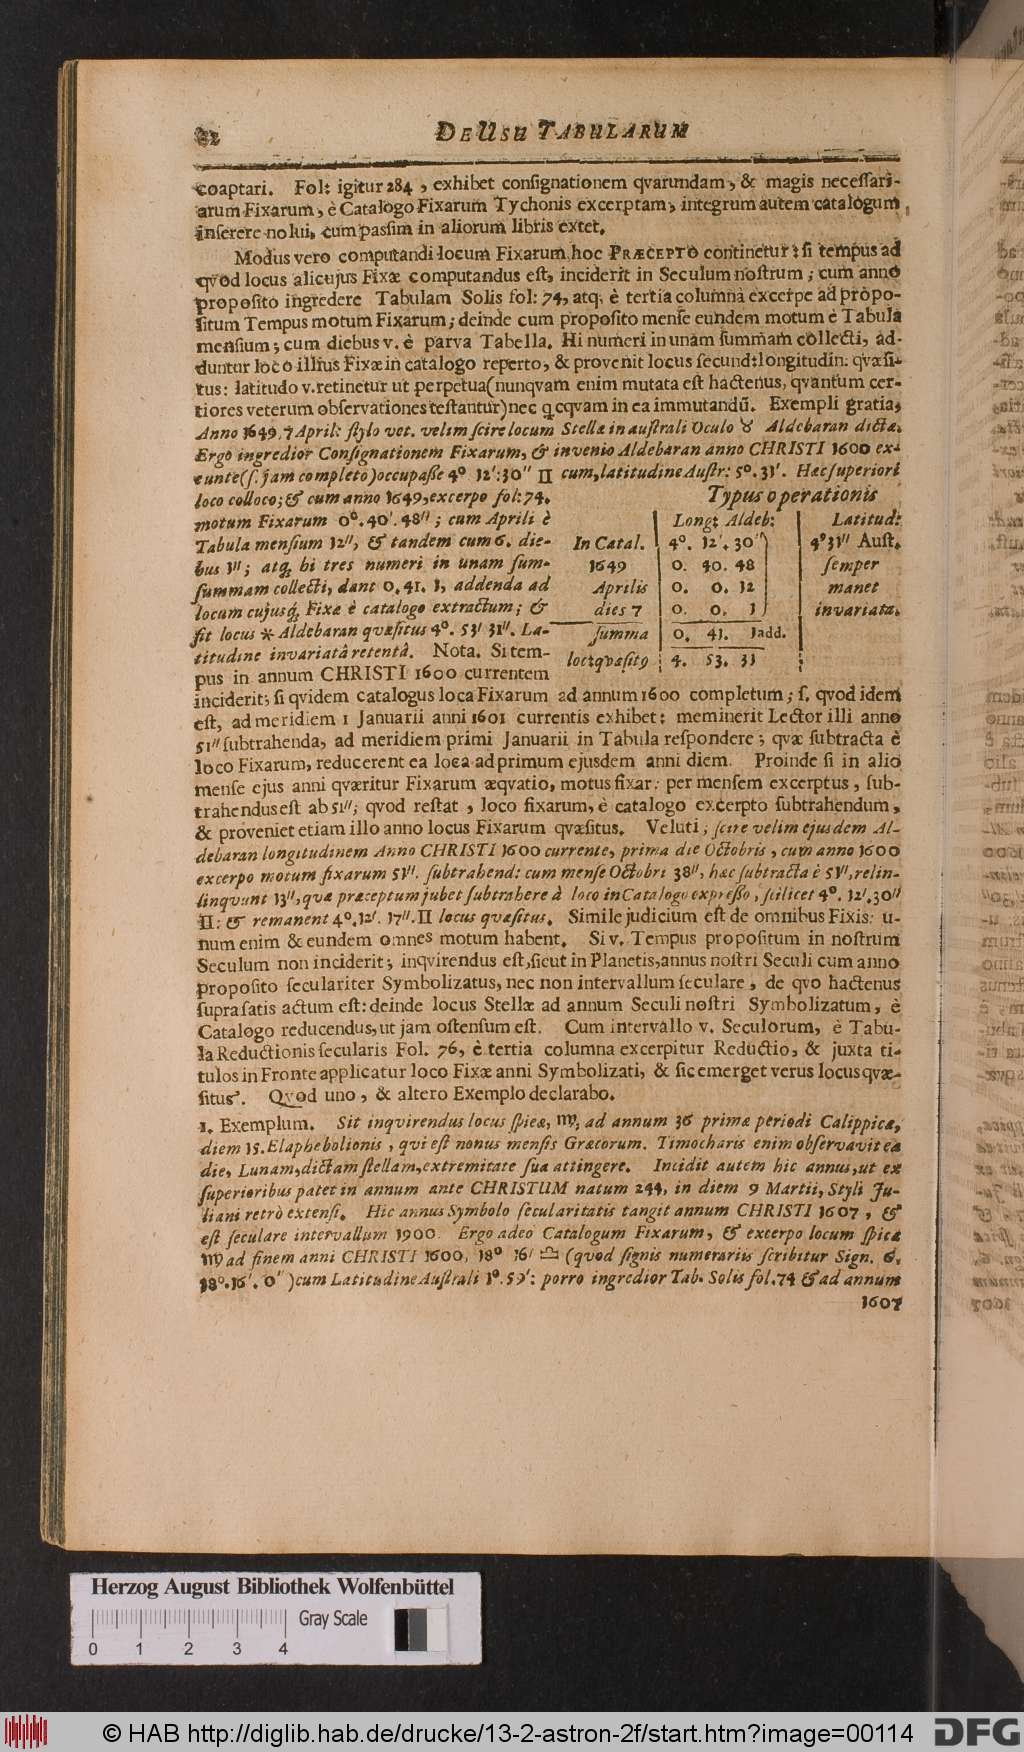 82 DE USU TABULARUM
coaptari. Fol: igitur 284, exhibet consignationem qvarundam, & magis necessari-
arum Fixarum, è Catalogo Fixarum Tychonis excerptam, integrum autem catalogum
inserere nolui, cum passim in aliorum libris extet.
Modus vero computandi locum Fixarum hoc PRÆCEPTO continetur: si tempus ad
qvod locus alicujus Fixæ computandus est, inciderit in Seculum nostrum; cum anno
proposito ingredere Tabulam Solis fol: 74, atq; è tertia columnâ excerpe ad propo-
situm Tempus motum Fixarum; deinde cum proposito mense eundem motum è Tabula
mensium; cum diebus v. è parva Tabella. Hi numeri in unam summam collecti, ad-
duntur loco illius Fixæ in catalogo reperto, & provenit locus secund: longitudin: qvæsi-
tus: latitudo v. retinetur ut perpetua (nunqvam enim mutata est hactenus, qvantum cer-
tiores veterum observationes testantur) nec q̃cqvam in ea immutandũ. Exempli gratia,
Anno 1649. 7 April: stylo vet. velim scire locum Stellæ in australi Oculo ♉ Aldebaran dictæ.
Ergo ingredior Consignationem Fixarum, & invenio Aldebaran anno CHRISTI 1600 ex-
eunte (s. jam completo) occupasse 4°. 12':30'' ♊ cum latitudine Austr: 5°. 31'. Hæc superiori
loco colloco; & cum anno 1649, excerpo fol: 74.
motum Fixarum 0°. 40'. 48''; cum Aprili è
Tabula mensium 12'', & tandem cum 6. die-
bus 1''; atq; hi tres numeri in unam sum-
summam collecti, dant 0. 41. 1, addenda ad
locum cujusq; Fixæ è catalogo extractum; &
fit locus * Aldebaran quæsitus 4°. 53' 31''. La-
titudine invariatâ retentâ. Nota. Si tem-
pus in annum CHRISTI 1600 currentem
Typus operationis
Long: Aldeb: Latitud:
In Catal. 4°. 12'. 30'' 4°31'' Aust.
1649 0. 40. 48 semper
Aprilis 0. 0. 12 manet
dies 7 0. 0. 1 invariata.
summa 0. 41. 1 add.
loc9 qvæsit9 4. 53. 31
inciderit; si qvidem catalogus loca Fixarum ad annum 1600 completum; s. qvod idem
est, ad meridiem 1 Januarii anni 1601 currentis exhibet: meminerit Lector illi anno
51'' subtrahenda, ad meridiem primi Januarii in Tabula respondere; qvæ subtracta è
loco Fixarum, reducerent ea loca ad primum ejusdem anni diem. Proinde si in alio
mense ejus anni qværitur Fixarum æqvatio, motus fixar: per mensem excerptus, sub-
trahendus est ab 51''; qvod restat, loco fixarum, è catalogo excerpto subtrahendum,
& proveniet etiam illo anno locus Fixarum qvæsitus. Veluti, scire velim ejusdem Al-
debaran longitudinem Anno CHRISTI 1600 currente, prima die Octobris, cum anno 1600
excerpo motum fixarum 51''. subtrahend: cum mense Octobri 38'', hæc subtracta è 51'', relin-
linqvunt 13'', quæ præceptum jubet subtrahere à loco in Catalogo expresso, scilicet 4°. 12'. 30''
♊: & remanent 4°. 12'. 17''. ♊ locus quæsitus. Simile judicium est de omnibus Fixis: u-
num enim & eundem omnes motum habent. Si v. Tempus propositum in nostrum
Seculum non inciderit; inqvirendus est, sicut in Planetis, annus nostri Seculi cum anno
proposito seculariter Symbolizatus, nec non intervallum seculare, de qvo hactenus
supra satis actum est: deinde locus Stellæ ad annum Seculi nostri Symbolizatum, è
Catalogo reducendus, ut jam ostensum est. Cum intervallo v. Seculorum, è Tabu-
la Reductionis secularis Fol. 76, è tertia columna excerpitur Reductio, & juxta ti-
tulos in Fronte applicatur loco Fixæ anni Symbolizati, & sic emerget verus locus qvæ-
situs. Qvod uno, & altero Exemplo declarabo.
1. Exemplum. Sit inqvirendus locus spicæ, ♍, ad annum 36 primæ periodi Calippicæ,
diem 15. Elaphebolionis, qui est nonus mensis Græcorum. Timocharis enim observavit ea
die, Lunam, dictam stellam, extremitate sua attingere. Incidit autem hic annus, ut ex
superioribus patet in annum ante CHRISTUM natum 244, in diem 9 Martii, Styli Ju-
liani retrò extensi. Hic annus Symbolo secularitatis tangit annum CHRISTI 1607, &
est seculare intervallum 1900. Ergo adeo Catalogum Fixarum, & excerpo locum spicæ
♍ ad finem anni CHRISTI 1600, 18° 16' ♎ (quod signis numerariis scribitur Sign. 6.
18°. 16'. 0'') cum Latitudine Australi 1°. 59': porro ingredior Tab. Solis fol. 74 & ad annum
1607
Herzog August Bibliothek Wolfenbüttel
Gray Scale
0 1 2 3 4
© HAB http://diglib.hab.de/drucke/13-2-astron-2f/start.htm?image=00114
DFG